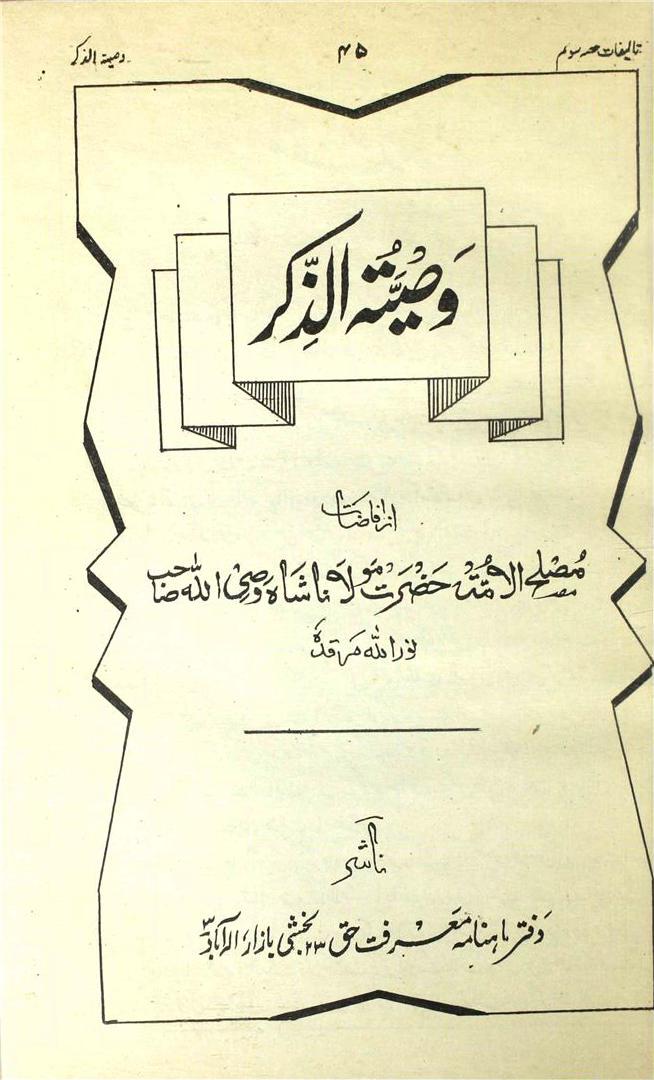 تالیفات حصہ سوم ۴۵ وصیۃ الذکر
وَصِیَّۃُ الذِّکر
از افاضات
مُصلح الامّتہ حَضرَت مَولاَنا شَاہ وَصِیُ اللہ صَاحبؒ
نور اللہ مَرقدہٗ
ناشَر
دَفتر ماہنامہ مَعرفت حق ۲۳ بخشی بازار، الہ آباد ۳